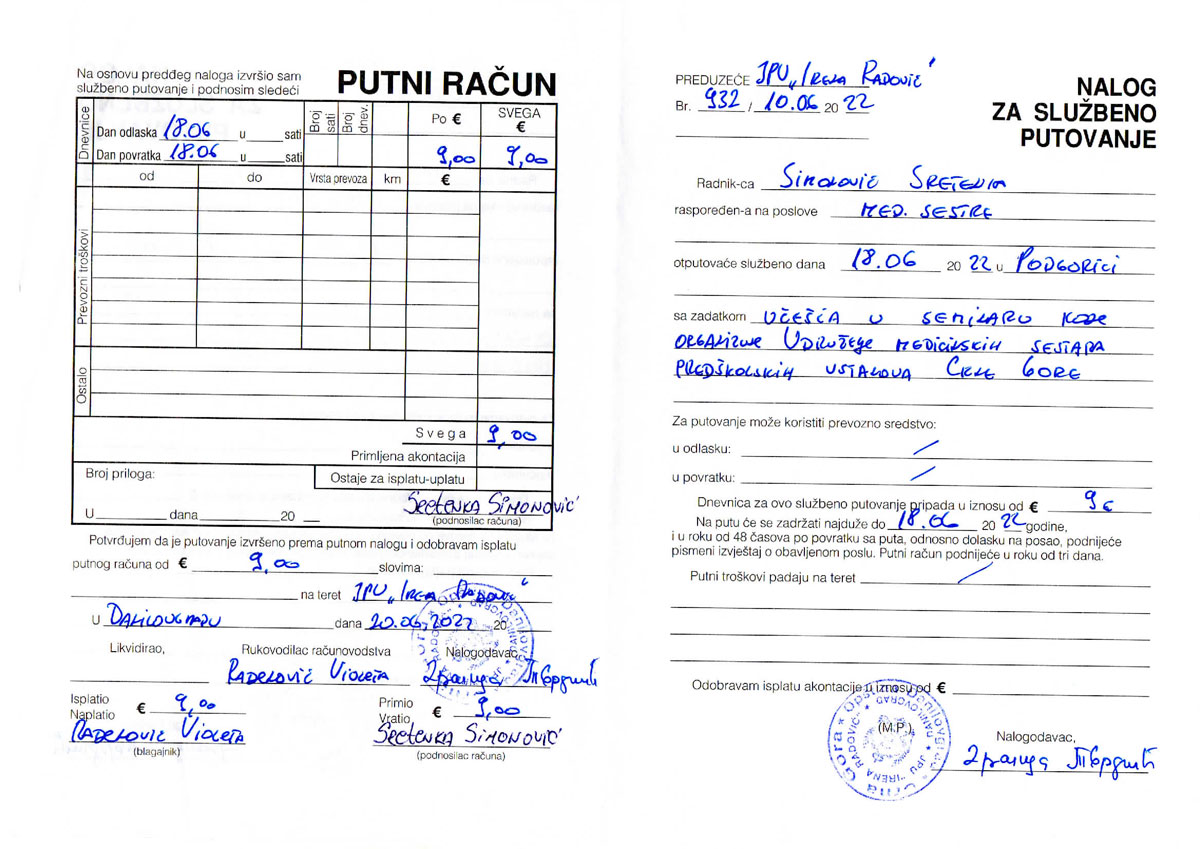 Na osnovu predđeg naloga izvršio sam
službeno putovanje i podnosim sledeći
PUTNI RAČUN
Dnevnice
Dan odlaska 18.06 u sati
Dan povratka 18.06 u sati
Broj sati
Broj dnev.
Po €
SVEGA €
9,00 9,00
Prevozni troškovi
od do Vrsta prevoza km €
Ostalo
Svega 9,00
Primljena akontacija
Broj priloga:
Ostaje za isplatu-uplatu
Sretenka Simonović
U dana 20
(podnosilac računa)
Potvrđujem da je putovanje izvršeno prema putnom nalogu i odobravam isplatu
putnog računa od € 9,00 slovima:
na teret JPU „Irena Radović“
U Danilovgradu dana 20.06.2022 20
Likvidirao, Rukovodilac računovodstva Nalogodavac,
Radenović Violeta
Isplatio
Naplatio € 9,00
Primio
Vratio € 9,00
Radenović Violeta
(blagajnik)
Sretenka Simonović
(podnosilac računa)
PREDUZEĆE JPU „Irena Radović“
Br. 932 / 10.06 2022
NALOG
ZA SLUŽBENO
PUTOVANJE
Radnik-ca Simonović Sretenka
raspoređen-a na poslove MED. SESTRE
otputovaće službeno dana 18.06 2022 u PODGORICI
sa zadatkom UČEŠĆA U SEMINARU KOJE
ORGANIZUJE UDRUŽENJE MEDICINSKIH SESTARA
PREDŠKOLSKIH USTANOVA CRNE GORE
Za putovanje može koristiti prevozno sredstvo:
u odlasku: /
u povratku: /
Dnevnica za ovo službeno putovanje pripada u iznosu od € 9€
Na putu će se zadržati najduže do 18.06 2022 godine,
i u roku od 48 časova po povratku sa puta, odnosno dolasku na posao, podnijeće
pismeni izvještaj o obavljenom poslu. Putni račun podnijeće u roku od tri dana.
Putni troškovi padaju na teret /
Odobravam isplatu akontacije u iznosu od €
(M.P.)
Crna Gora * Opština Danilovgrad
JPU "IRENA RADOVIĆ" * DANILOVGRAD
Nalogodavac,